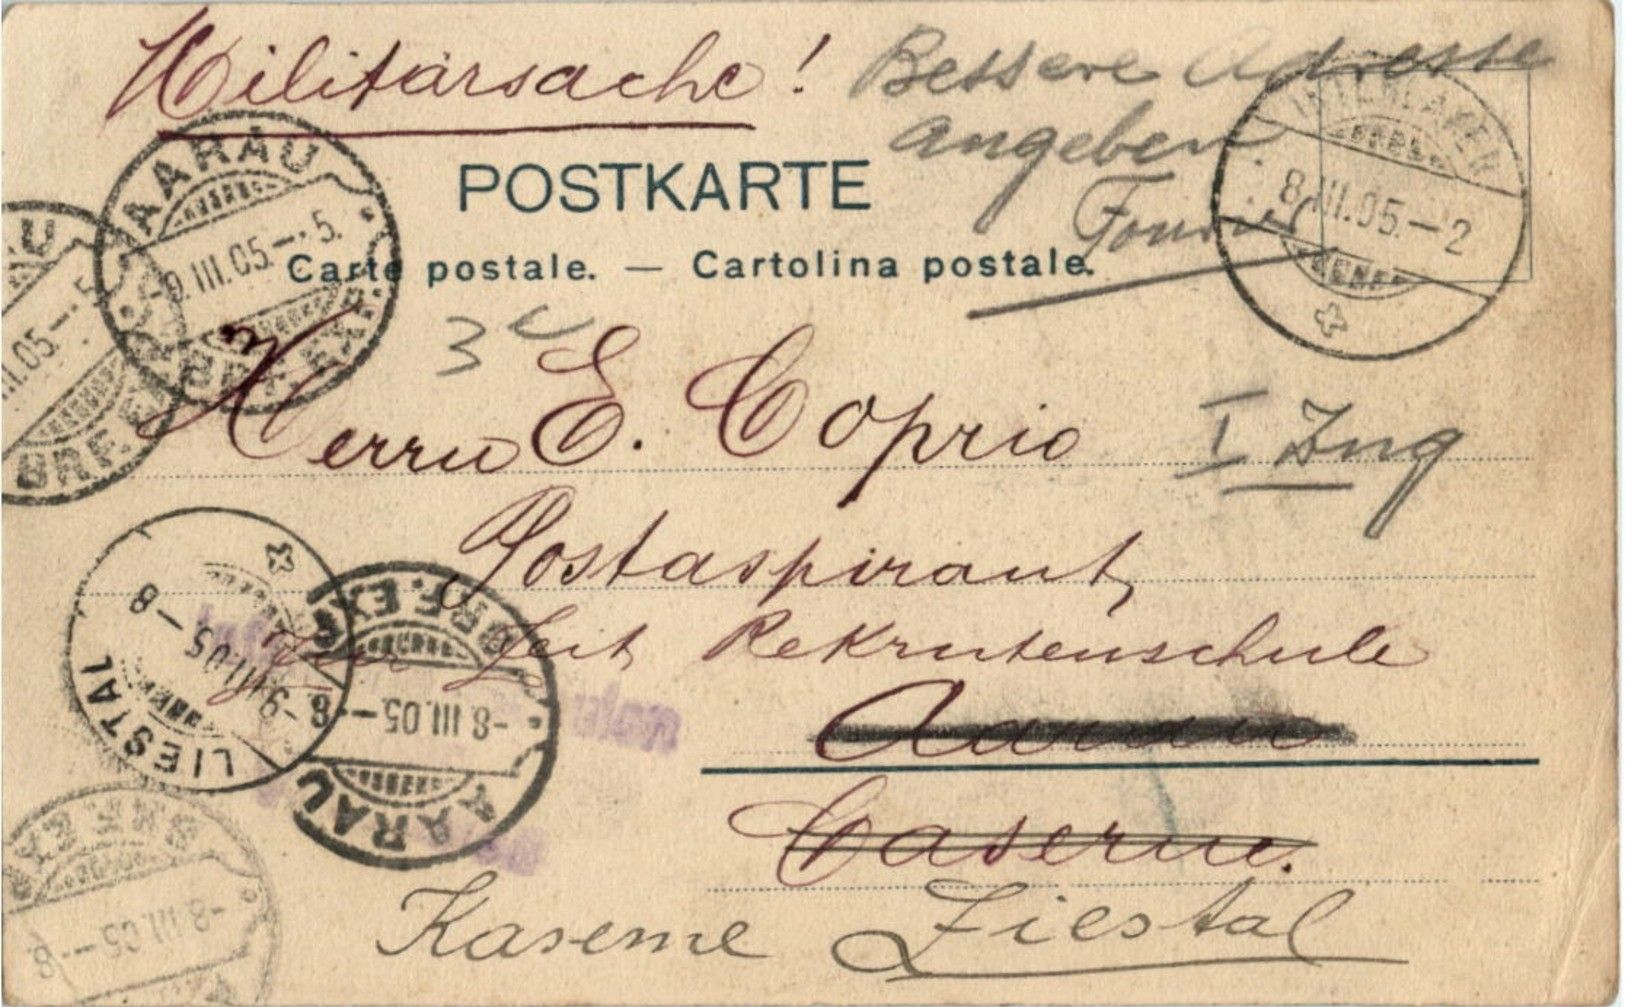 Militärsache!
Bessere Adresse
angeben.
Fourier
POSTKARTE
Carte postale. — Cartolina postale.
INTERLAKEN
8.III.05.–2
AARAU
-9.III.05.–.5.
BRF. EXP.
III.05.–5
BRF. EXP.
3
Herrn E. Coprio
I Ing
Postaspirant,
Zur Zeit Rekrutenschule
Aarau
Caserne.
Kaserne Liestal
LIESTAL
-9.III.05–8
AARAU
-8.III.05.–8
BRF. EXP.
-8.III.05–8
BRF. EXP.